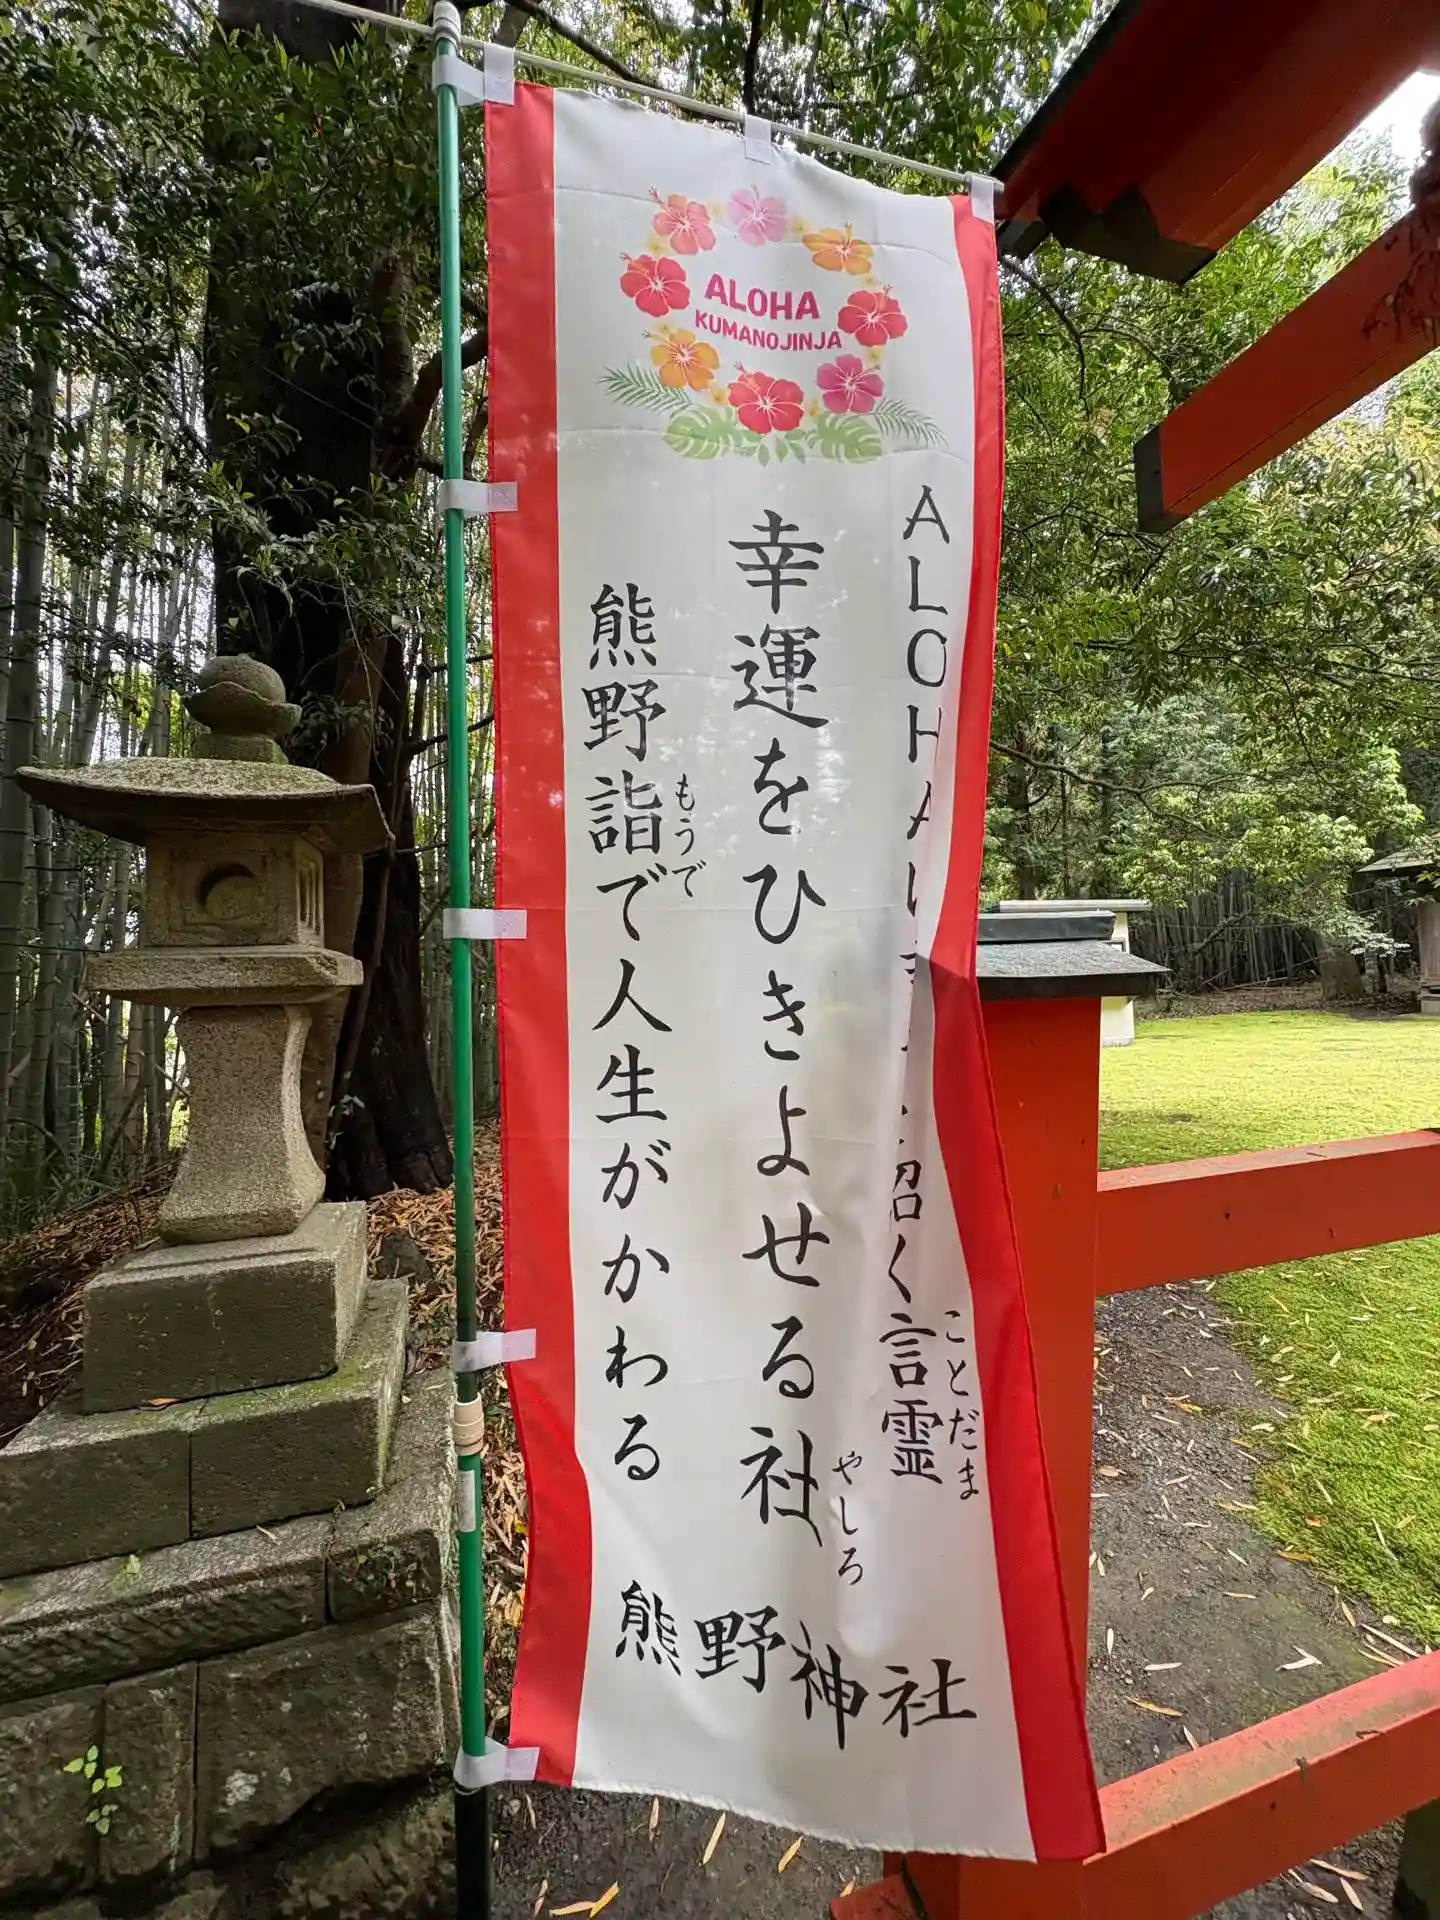 ALOHA
KUMANOJINJA
ALOHAは 招く言霊
ことだま
幸運をひきよせる社
やしろ
熊野詣で人生がかわる
もうで
熊野神社